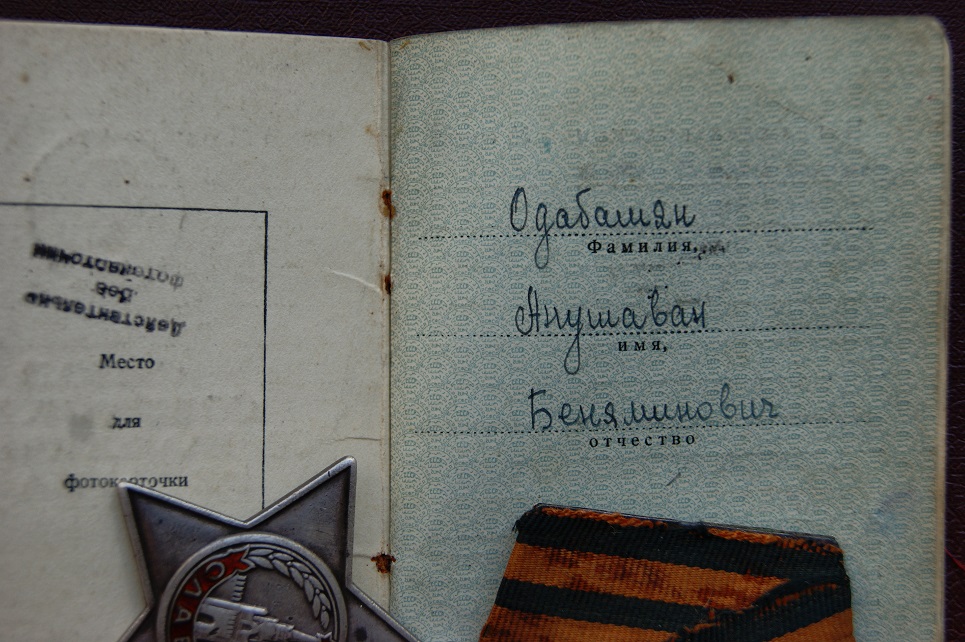 Действительна
без
фотокарточки
Место
для
фотокарточки
СЛАВ
Одабашян
Фамилия,
Анушаван
имя,
Беняминович
отчество